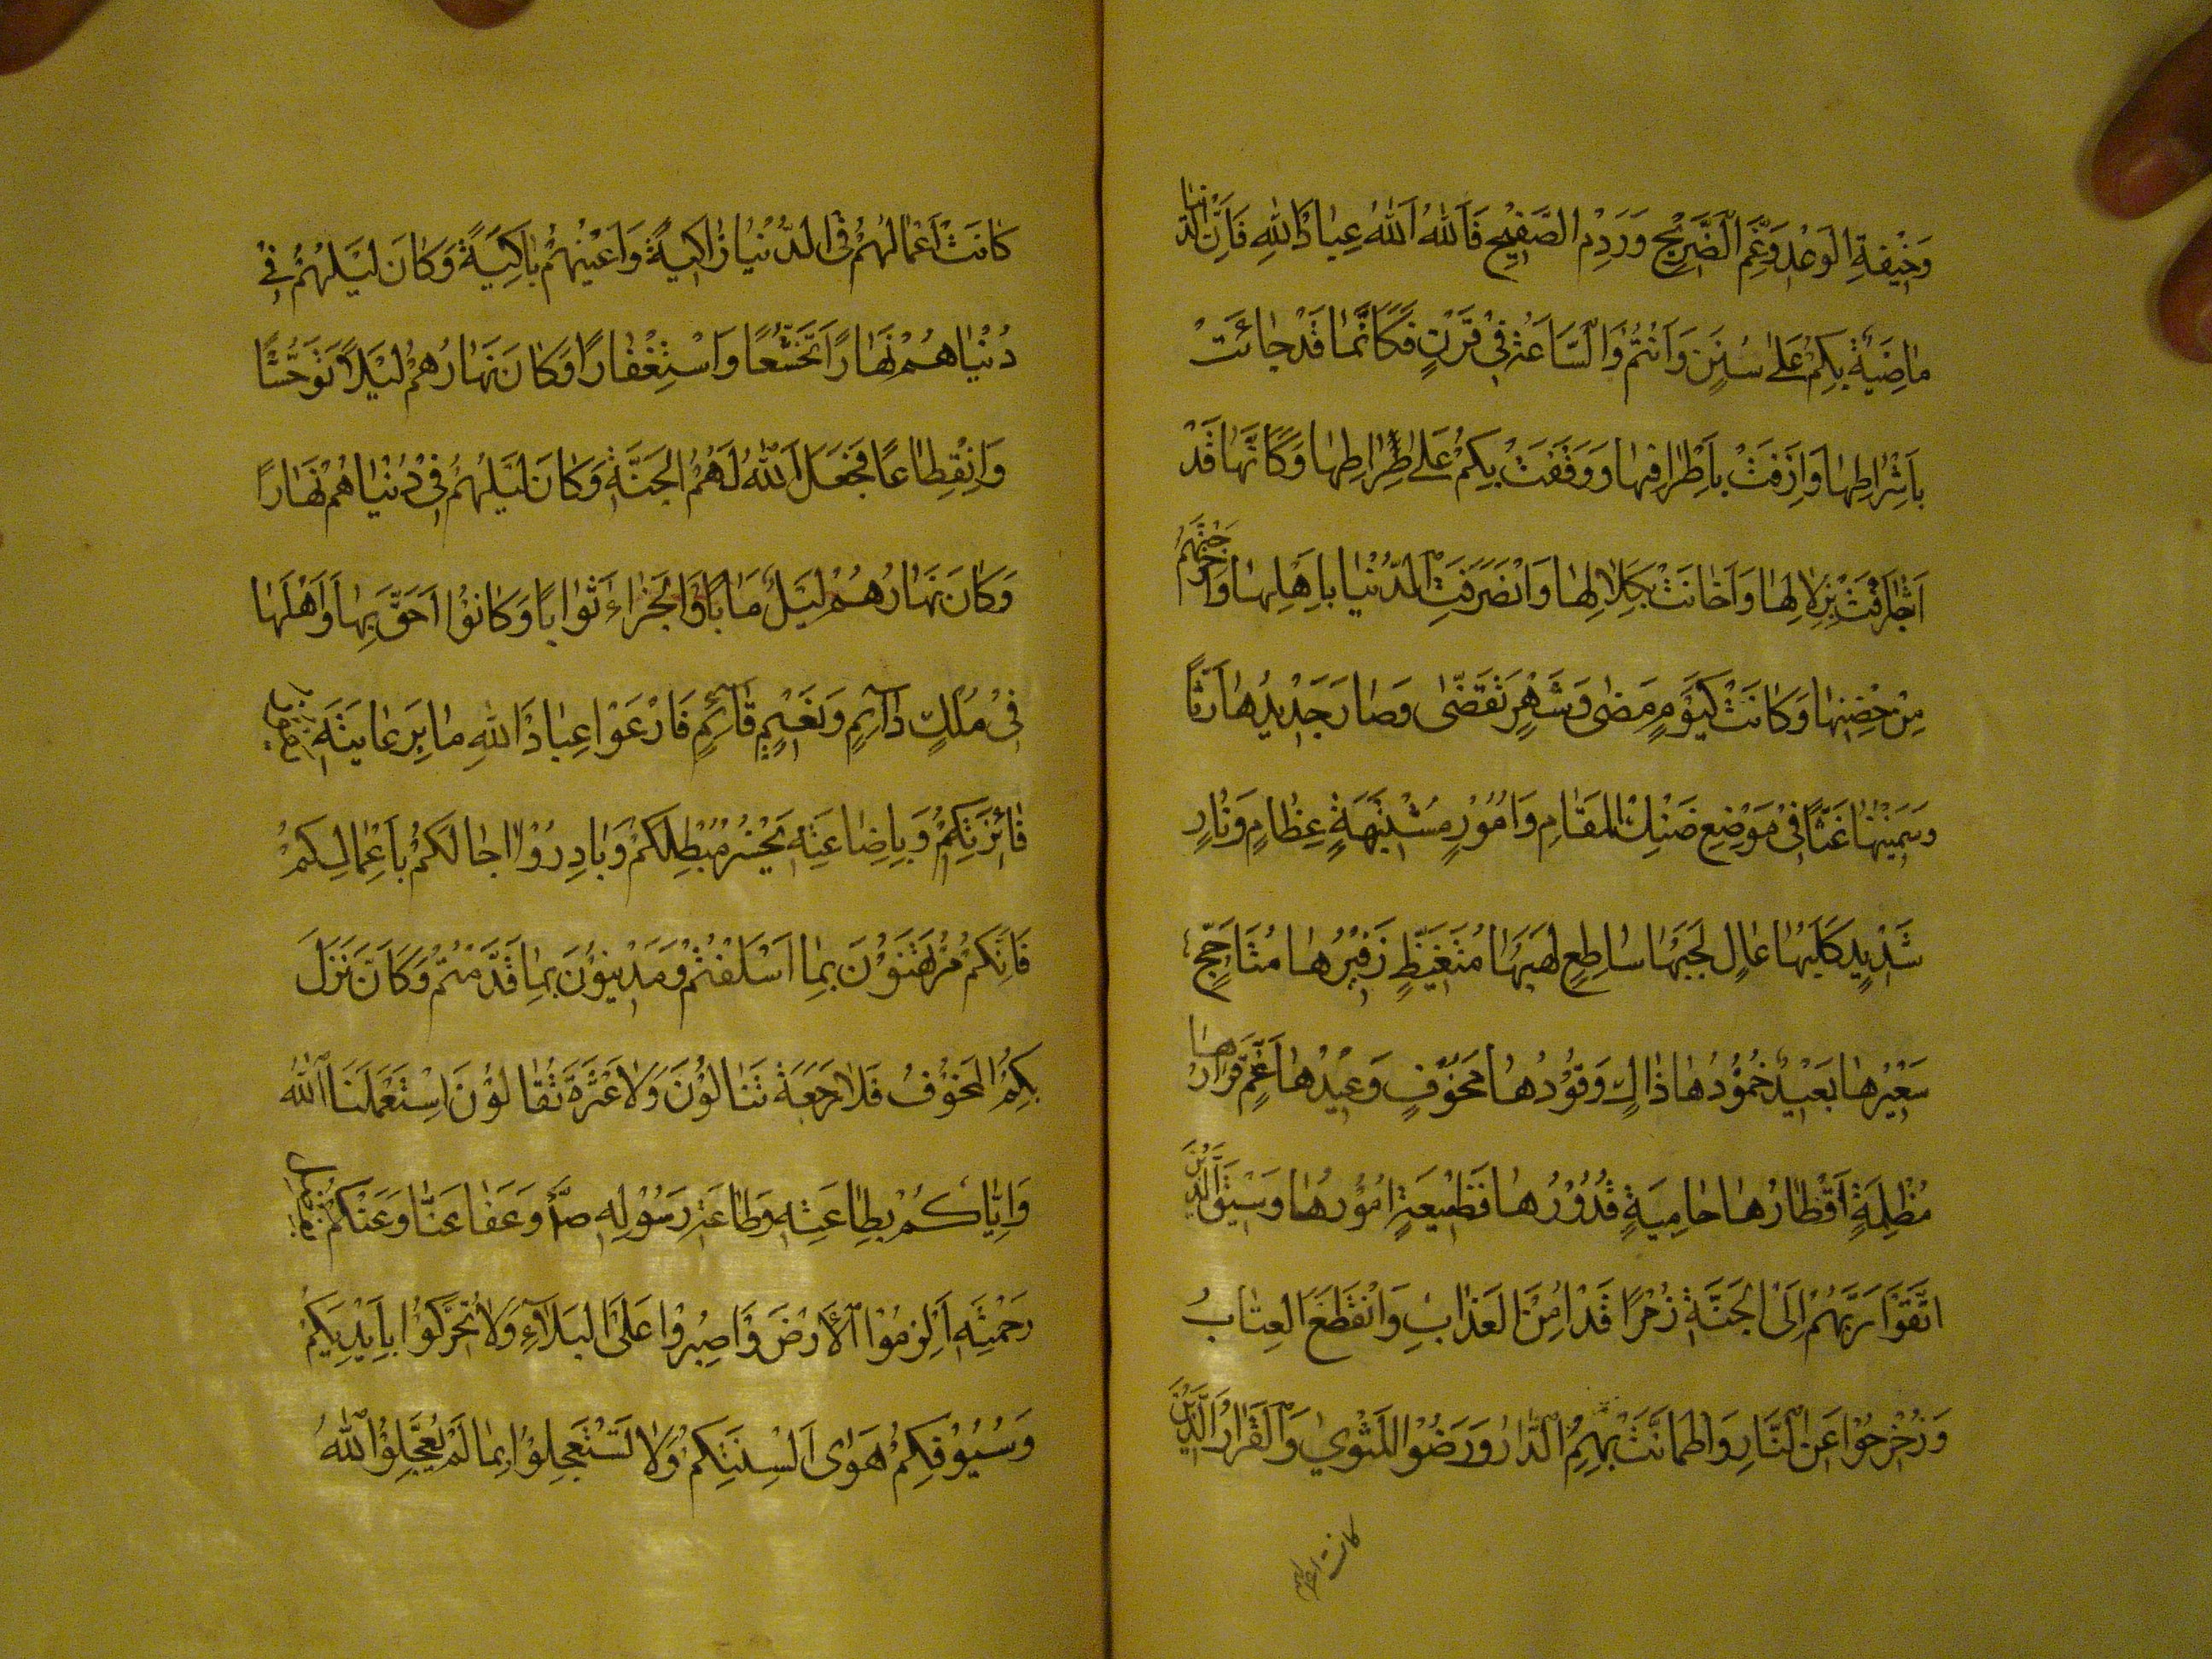 وَخِيْفَةِ الْوَعْدِ وَغَمِّ الضَّرِيْحِ وَرَدْمِ الصَّفِيْحِ فَاللّٰهَ اللّٰهَ عِبَادَ اللّٰهِ فَاِنَّ الدُّنْيَا
مَاضِيَةٌ بِكُمْ عَلٰى سَنَنٍ وَاَنْتُمْ وَالسَّاعَةُ فِيْ قَرَنٍ فَكَاَنَّمَا قَدْ جَائَتْ
بِاَشْرَاطِهَا وَاَزِفَتْ بِاَطْرَافِهَا وَوَقَفَتْ بِكُمْ عَلٰى صِرَاطِهَا وَكَاَنَّهَا قَدْ
اَشْرَفَتْ بِزَلَازِلِهَا وَاَخَانَتْ بِكَلَاكِلِهَا وَانْصَرَفَتِ الدُّنْيَا بِاَهْلِهَا وَاَخْرَجَتْهُمْ
مِنْ حِضْنِهَا وَكَانَتْ كَيَوْمٍ مَضٰى وَشَهْرٍ نَقَضّٰى وَصَارَ جَدِيْدُهَا رَثًّا
وَسَمِيْنُهَا غَثًّا فِيْ مَوْضِعٍ ضَنْكِ الْمَقَامِ وَاُمُوْرٍ مُشْتَبِهَةٍ عِظَامٍ وَنَارٍ
شَدِيْدٍ كَلَبُهَا عَالٍ لَجَبُهَا سَاطِعٍ لَهَبُهَا مُتَغَيِّظٍ زَفِيْرُهَا مُتَاَجِّجٍ
سَعِيْرُهَا بَعِيْدٍ خُمُوْدُهَا ذَاكٍ وَقُوْدُهَا مَخُوْفٍ وَعِيْدُهَا غَمٍّ قَرَارُهَا
مُظْلِمَةٍ اَقْطَارُهَا حَامِيَةٍ قُدُوْرُهَا فَظِيْعَةٍ اُمُوْرُهَا وَسِيْقَ الَّذِيْنَ
اتَّقَوْا رَبَّهُمْ اِلَى الْجَنَّةِ زُمَرًا قَدْ اُمِنَ الْعَذَابُ وَانْقَطَعَ الْعِتَابُ
وَزُحْزِحُوْا عَنِ النَّارِ وَاطْمَاَنَّتْ بِهِمُ الدَّارُ وَرَضُوْا الْمَثْوٰى وَالْقَرَارَ الَّذِيْنَ
كانت اعمالهم
كَانَتْ اَعْمَالُهُمْ فِي الدُّنْيَا زَاكِيَةً وَاَعْيُنُهُمْ بَاكِيَةً وَكَانَ لَيْلُهُمْ فِيْ
دُنْيَاهُمْ نَهَارًا تَخَشُّعًا وَاسْتِغْفَارًا وَكَانَ نَهَارُهُمْ لَيْلًا تَوَحُّشًا
وَانْقِطَاعًا فَجَعَلَ اللّٰهُ لَهُمُ الْجَنَّةَ وَكَانَ لَيْلُهُمْ فِيْ دُنْيَاهُمْ نَهَارًا
وَكَانَ نَهَارُهُمْ لَيْلً مَاٰبًا وَالْجَزَاءَ ثَوَابًا وَكَانُوْا اَحَقَّ بِهَا وَاَهْلَهَا
فِيْ مُلْكٍ دَآئِمٍ وَنَعِيْمٍ قَآئِمٍ فَارْعَوْا عِبَادَ اللّٰهِ مَا بِرِعَايَتِهِ يفوز
فَائِزُكُمْ وَبِاِضَاعَتِهِ يَخْسَرُ مُبْطِلُكُمْ وَبَادِرُوْا اٰجَالَكُمْ بِاَعْمَالِكُمْ
فَاِنَّكُمْ مُرْتَهَنُوْنَ بِمَا اَسْلَفْتُمْ وَمَدِيْنُوْنَ بِمَا قَدَّمْتُمْ وَكَاَنْ نَزَلَ
بِكُمُ الْمَخُوْفُ فَلَا رَجْعَةَ تَنَالُوْنَ وَلَا عَثْرَةَ تُقَالُوْنَ اسْتَعْمَلَنَا اللّٰهُ
وَاِيَّاكُمْ بِطَاعَتِهِ وَطَاعَةِ رَسُوْلِهِ صؐ وَعَفَا عَنَّا وَعَنْكُمْ بفضل
رَحْمَتِهِ اَلْزِمُوْا الْاَرْضَ وَاصْبِرُوْا عَلَى الْبَلَآءِ وَلَا تُحَرِّكُوْا بِاَيْدِيْكُمْ
وَسُيُوْفِكُمْ هَوٰى اَلْسِنَتِكُمْ وَلَا تَسْتَعْجِلُوْا بِمَا لَمْ يُعَجِّلُوْا اللّٰهُ